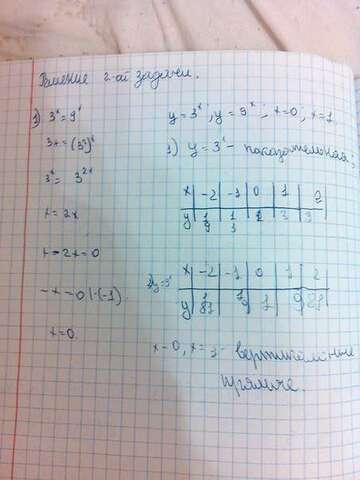 Решение 2-ой задачи.
1) 3ˣ = 9ˣ
3ˣ = (3²)ˣ
3ˣ = 3²ˣ
x = 2x
x - 2x = 0
-x = 0 |·(-1)
x = 0
y = 3ˣ, y = 9ˣ, x = 0, x = 1
1) y = 3ˣ - показательная,
x | -2 | -1 | 0 | 1 | 2
y | 1/9 | 1/3 | 1 | 3 | 9
x | -2 | -1 | 0 | 1 | 2
y | 1/81 | 1/9 | 1 | 9 | 81
x = 0, x = 1 - вертикальные
прямые.